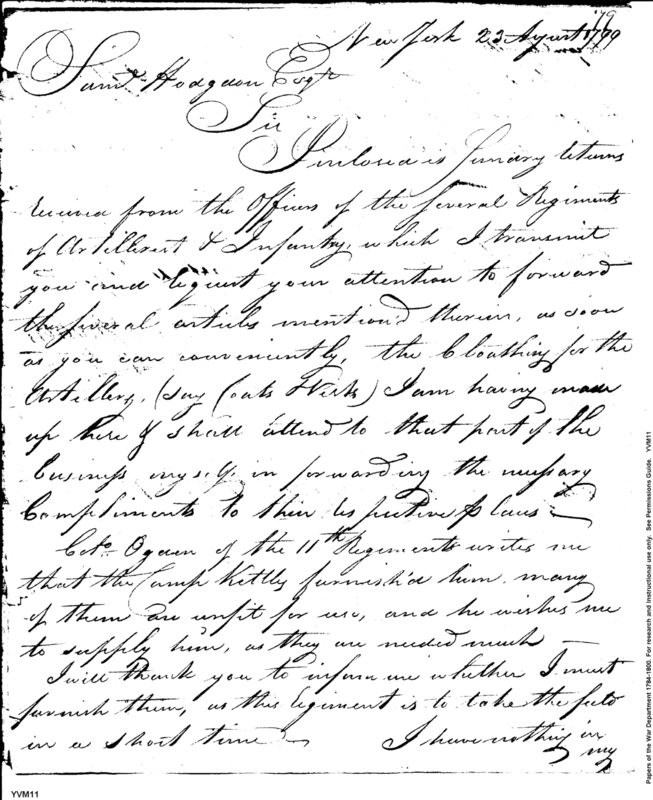 '79
New York 23 August 1799
Saml. Hodgdon Esqr
Sir
Inclosed is Sundry returns
received from the Officers of the several Regiments
of Artillerist & Infantry, which I transmit
you and request your attention to forward
the several articles mention'd therein, as soon
as you can conveniently, the Cloathing for the
Artillery, (say Coats & Vests) I am having made
up here & shall attend to that part of the
business myself in forwarding the necessary
Compliments to their respective places
Colo. Ogden of the 11th Regiment writes me
that the Camp Kettles furnish'd him, many
of them are unfit for use, and he wishes me
to supply him, as they are needed much —
I will thank you to inform me whether I must
furnish them, as this Regiment is to take the field
in a short time — I have nothing in
my
YVM11
Papers of the War Department 1784-1800. For research and instructional use only. See Permissions Guide. YVM11